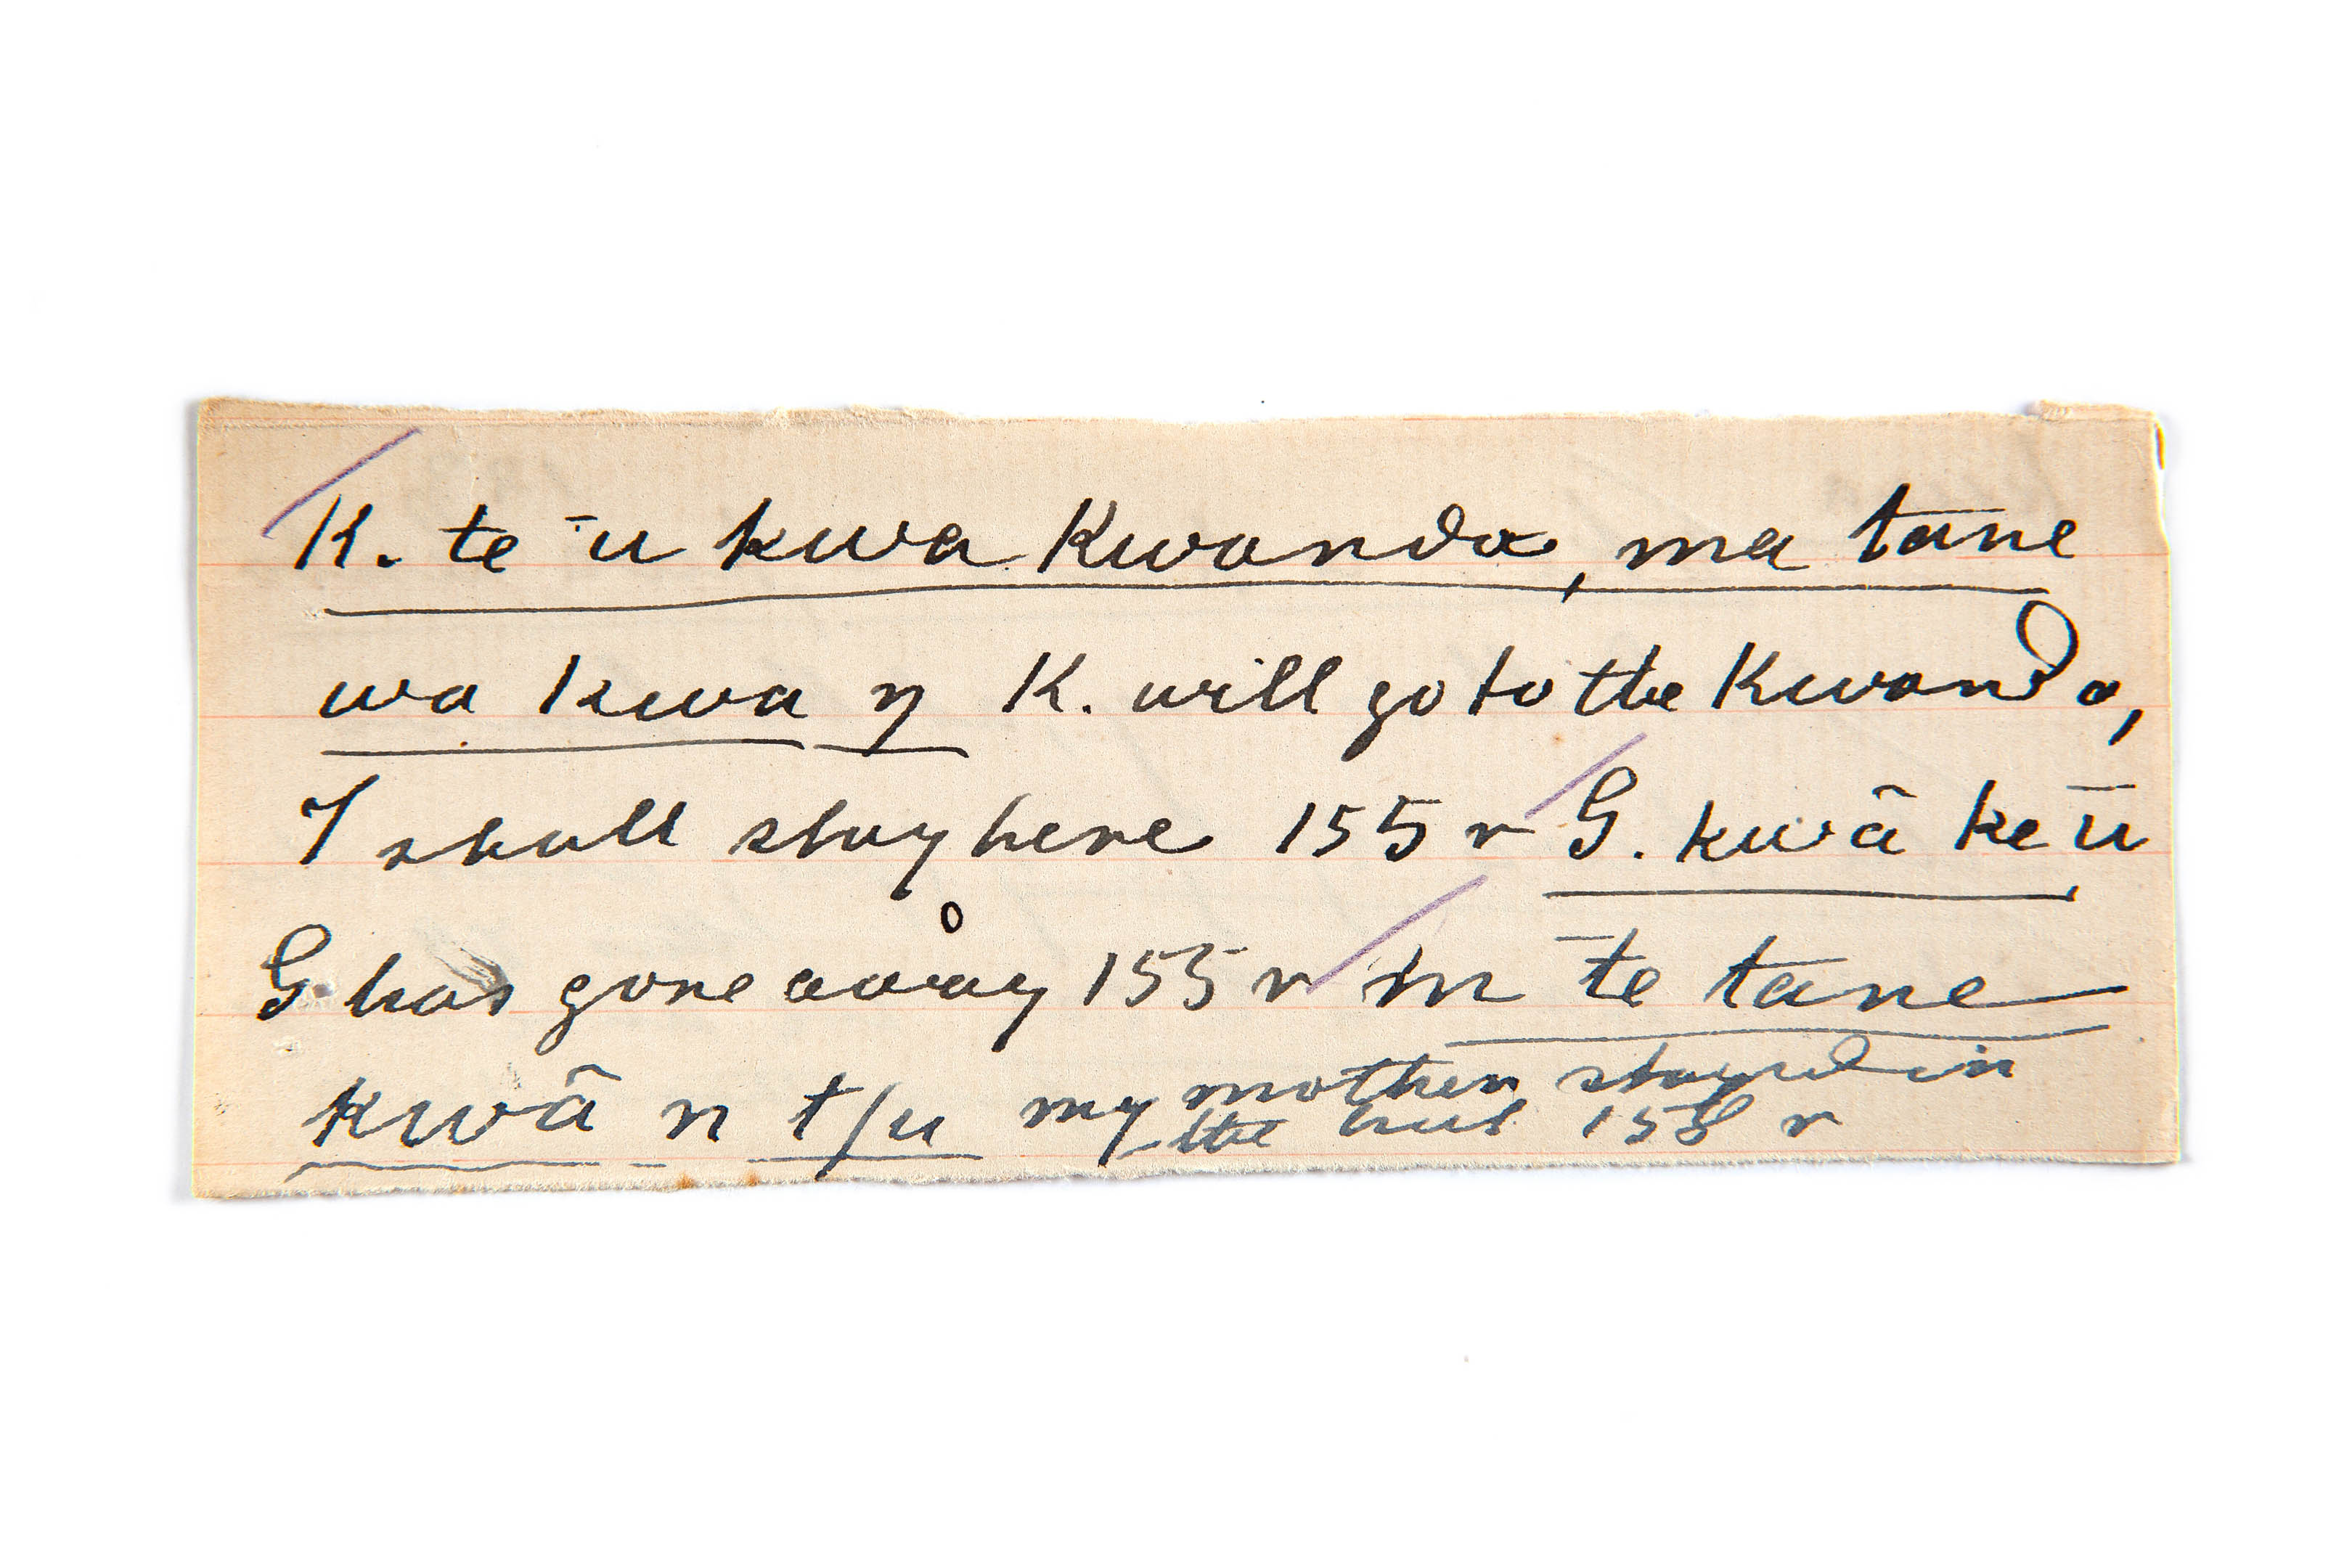 K. te ū kwa Kwando, ma tane
wa kwa ŋ K. will go to the Kwando,
I shall stay here 155 r G. kwâ ke ū
G has gone away 155 r m̄ te tane
kwâ n t/u my mother stayed in
the hut 155 r